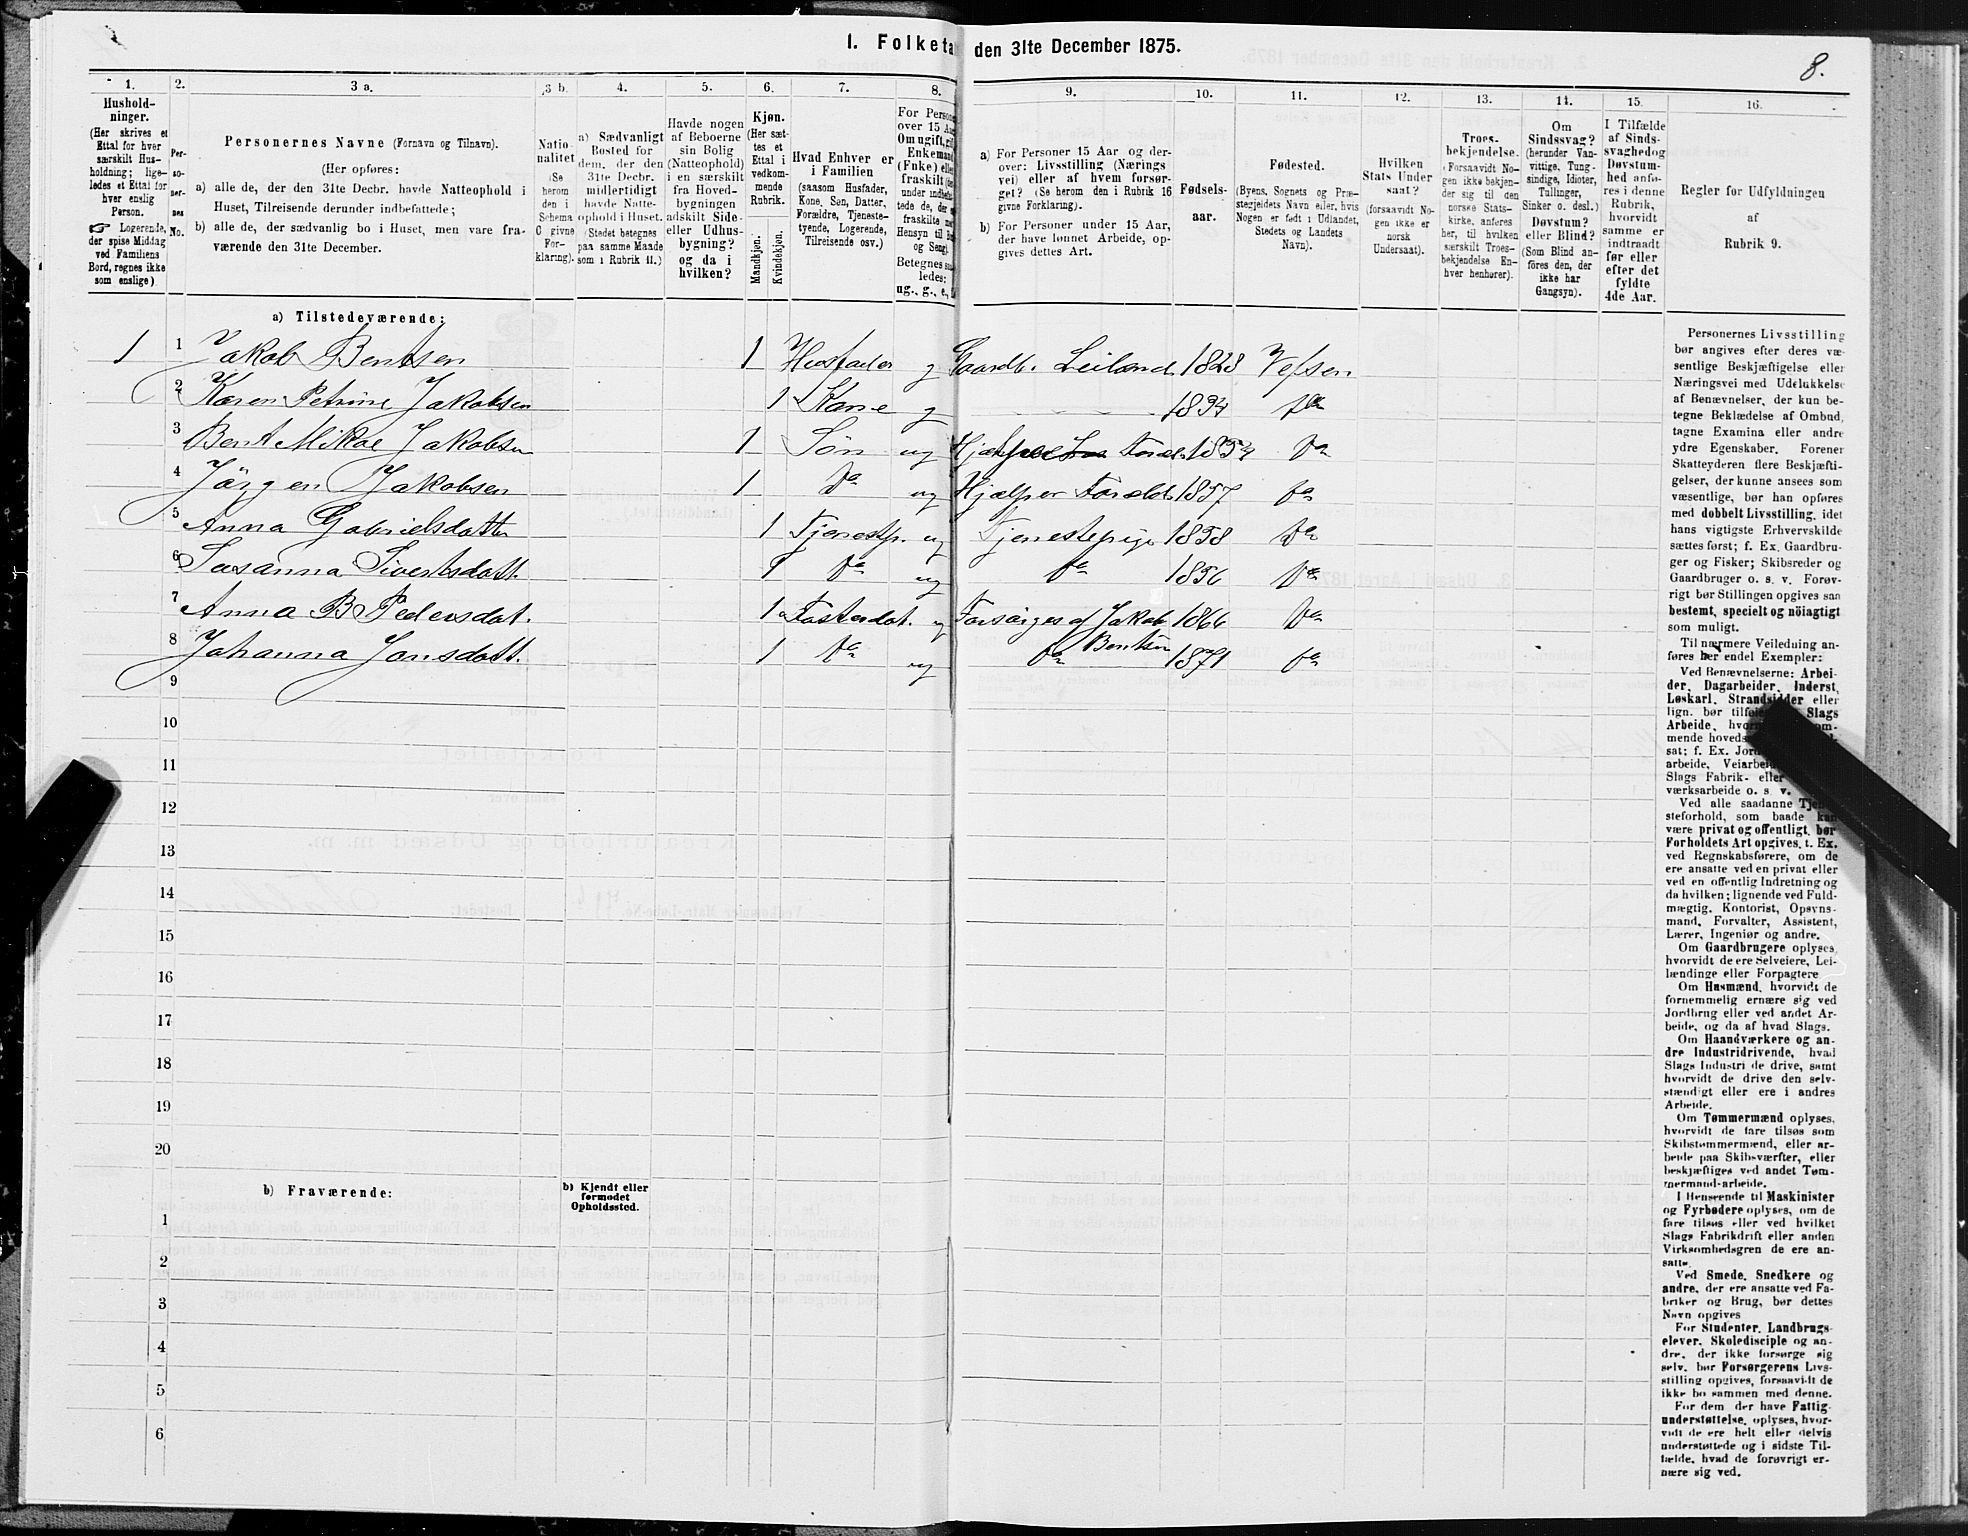 I. Folketa den 31te December 1875.
8.
1.
Hushold-
ninger.
(Her skrives et
Ettal for hver
særskilt Hus-
holdning; lige-
ledes et Ettal for
hver enslig
Person.
☞ Logerende,
der spise Middag
ved Familiens
Bord, regnes ikke
som enslige)
2.
Per-
so-
ner-
nes
No.
3 a.
Personernes Navne (Fornavn og Tilnavn).
(Her opføres:
a) alle de, der den 31te Decbr. havde Natteophold i
Huset, Tilreisende derunder indbefattede;
b) alle de, der sædvanlig bo i Huset, men vare fra-
værende den 31te December.
3 b.
Natio-
nalitet
(Se
herom
den i
Schema
C givne
For-
klaring).
4.
a) Sædvanligt
Bosted for
dem, der den
31te Decbr.
midlertidigt
havde Natte-
ophold i Huset.
(Stedet betegnes
paa samme Maade
som i Rubrik 11.)
5.
Havde nogen
af Beboerne
sin Bolig
(Natteophold)
i en særskilt
fra Hoved-
bygningen
adskilt Side-
eller Udhus-
bygning?
og da i
hvilken?
6.
Kjøn.
(Her sæt-
tes et
Ettal i
vedkom-
mende
Rubrik.
Mandkjøn.
Kvindekjøn.
7.
Hvad Enhver er
i Familien
(saasom Husfader,
Kone, Søn, Datter,
Forældre, Tjeneste-
tyende, Logerende,
Tilreisende osv.)
8.
For Person
over 15 Aa
Om ugift, gif
Enkemand
(Enke) elle
fraskilt
under indbe
tede de, der
fraskilte
Hensyn til B
og Seng).
Betegnes
ledes:
ug., g., e.,
9.
a) For Personer 15 Aar og der-
over: Livsstilling (Nærings
vei) eller af hvem forsør-
get? (Se herom den i Rubrik 16
givne Forklaring).
b) For Personer under 15 Aar,
der have lønnet Arbeide, op-
gives dettes Art.
10.
Fødsels-
aar.
11.
Fødested.
(Byens, Sognets og Præ-
stegjeldets Navn eller, hvis
Nogen er født i Udlandet,
Stedets og Landets
Navn).
12.
Hvilken
Stats Under
saat?
(forsaavidt No-
gen ikke er
norsk
Undersaat).
13.
Troes-
bekjendelse.
(Forsaavidt No-
gen ikke bekjen-
der sig til den
norske Stats-
kirke, anføres
her, til hvilken
særskilt Troes-
bekjendelse En-
hver henhører).
14.
Om
Sindssvag?
(herunder Van-
vittige, Tung-
sindige, Idioter,
Tullinger,
Sinker o. desl.)
Døvstum?
eller Blind?
(Som Blind an-
føres den, der
ikke har
Gangsyn).
15.
I Tilfælde
af Sinds-
svaghed og
Døvstum-
hed anfø-
res i denne
Rubrik,
hvorvidt
samme er
indtraadt
før eller
efter det
fyldte
4de Aar.
16.
Regler for Udfyldningen
af
Rubrik 9.
a) Tilstedeværende:
1 1 Jakob Bentsen 1 Husfader g Gaardb. Leilænd. 1828 Vefsen
2 Karen Petrine Jakobsen 1 Kone g 1834 do
3 Bent Mikal Jakobsen 1 Søn ug Hjælper Foræl. 1854 Do
4 Jörgen Jakobsen 1 Do ug Hjælper Foræld. 1857 do
5 Anna Gabrielsdatter 1 Tjenestp. ug Tjenestepige 1858 Do
6 Susanna Sivertsdatt. 1 Do ug do 1856 Do
7 Anna B Pedersdat. 1 Fosterdat. ug Forsørges af Jakob 1866 Do
Bentsen
8 Johanna Jonsdatt. 1 do ug do 1871 do
9
10
11
12
13
14
15
16
17
18
19
20
b) Fraværende:
b) Kjendt eller
formodet
Opholdssted.
1
2
3
4
5
6
Personernes Livsstilling
bør angives efter deres væ-
sentlige Beskjæftigelse eller
Næringsvei med Udelukkelse
af Benævnelser, der kun be-
tegne Beklædelse af Ombud,
tagne Examina eller andre
ydre Egenskaber. Forener
Skatteyderen flere Beskjæfti-
gelser, der kunne ansees som
væsentlige, bør han opføres
med dobbelt Livsstilling, idet
hans vigtigste Erhvervskilde
sættes først; f. Ex. Gaardbru-
ger og Fisker; Skibsreder og
Gaardbruger o. s. v. Forøv-
rigt bør Stillingen opgives saa
bestemt, specielt og nöiagtigt
som muligt.
Til nærmere Veiledning an-
føres her endel Exempler:
Ved Benævnelserne: Arbei-
der, Dagarbeider, Inderst,
Løskarl, Strandsidder eller
lign. bør Slags
Arbeide,
mende
sat; f. Ex.
arbeide, Veiarbei
Slags Fabrik- eller
værksarbeide o. s. v.
Ved alle saadanne
steforhold, som baade kan
være privat og offentligt, bør
Forholdets Art opgives, t. Ex.
ved Regnskabsførere, om de
ere ansatte ved en privat eller
ved en offentlig Indretning og
da hvilken; lignende ved Fuld-
mægtig, Kontorist, Opsyns-
mand, Forvalter, Assistent,
Lærer, Ingeniør og andre.
Om Gaardbrugere oplyses,
hvorvidt de ere Selveiere, Lei-
lændinge eller Forpagtere
Om Husmænd, hvorvidt de
fornemmelig ernære sig ved
Jordbrug eller ved andet Ar-
beide, og da af hvad Slags.
Om Haandværkere og an-
dre Industridrivende, hvad
Slags Industri de drive, samt
hvorvidt de drive den selv-
stændigt eller ere i andres
Arbeide.
Om Tømmermænd oplyses,
hvorvidt de fare tilsøs som
Skibstømmermænd, eller ar-
beide paa Skibsværfter, eller
beskjæftiges ved andet Tøm-
mermand-arbeide.
I Henseende til Maskinister
og Fyrbødere oplyses, om de
fare tilsøs eller ved hvilket
Slags Fabrikdrift eller anden
Virksomhedsgren de ere an-
satte.
Ved Smede, Snedkere og
andre, der ere ansatte ved Fa-
briker og Brug, bør dettes
Navn opgives
For Studenter, Landbrugs-
elever, Skoledisciple og an-
dre, der ikke forsørge sig
selv, bør Forsørgerens Livs-
stilling opgives, forsaavidt de
ikke bo sammen med denne.
For dem, der have Fattig-
understøttelse, oplyses, hvor-
vidt de ere helt eller delvis
understøttede og i sidste Til-
fælde, hvad de forøvrigt er-
nære sig ved.